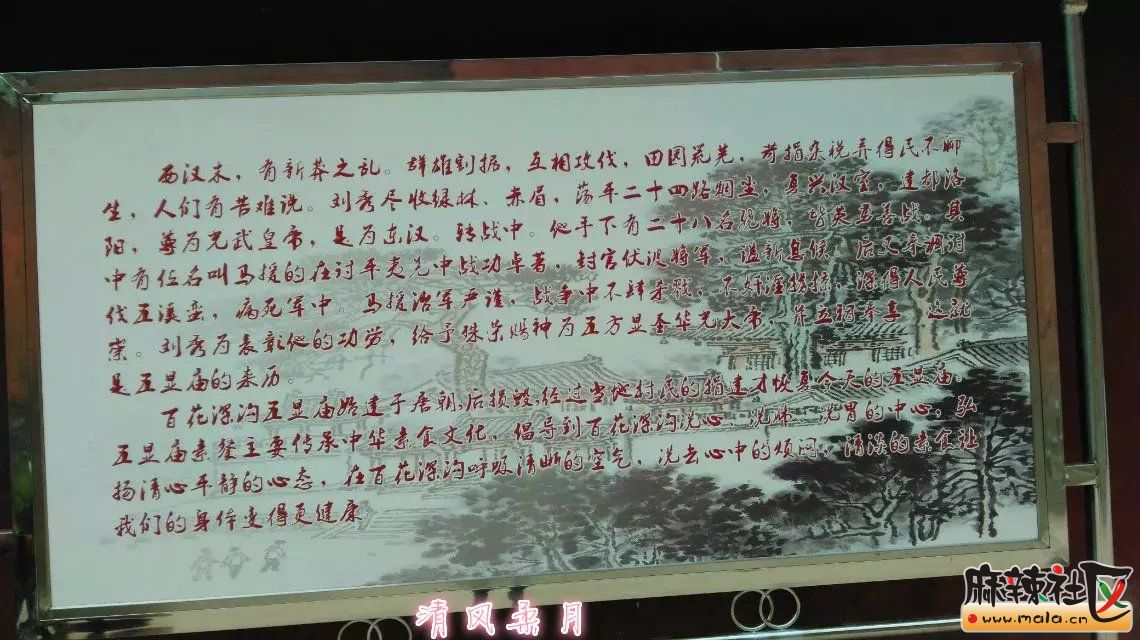 西汉末，有新莽之乱。群雄割据，互相攻伐，田园荒芜，苛捐杂税弄得民不聊
生，人们有苦难说。刘秀尽收绿林、赤眉，荡平二十四路烟尘，复兴汉室，建都洛
阳，尊为光武皇帝，是为东汉。转战中。他手下有二十八名骁将，皆英勇善战。其
中有位名叫马援的在讨平夷羌中战功卓著，封官伏波将军，谥新息侯。后又奉调讨
伐五溪蛮，病死军中。马援治军严谨，战争中不肆杀戮，不奸淫掳掠，深得人民尊
崇。刘秀为表彰他的功劳，给予殊荣赐神为五方显圣华光大帝，并立祠奉享 这就
是五显庙的来历。
百花深沟五显庙始建于唐朝，后损毁，经过当地村民的捐建才恢复今天的五显庙。
五显庙素餐主要传承中华素食文化，倡导到百花深沟洗心、洗肺、洗胃的中心，弘
扬清心平静的心态，在百花深沟呼吸清晰的空气，洗去心中的烦闷，清淡的素食让
我们的身体变得更健康
清风柔月
麻辣社区
www.mala.cn